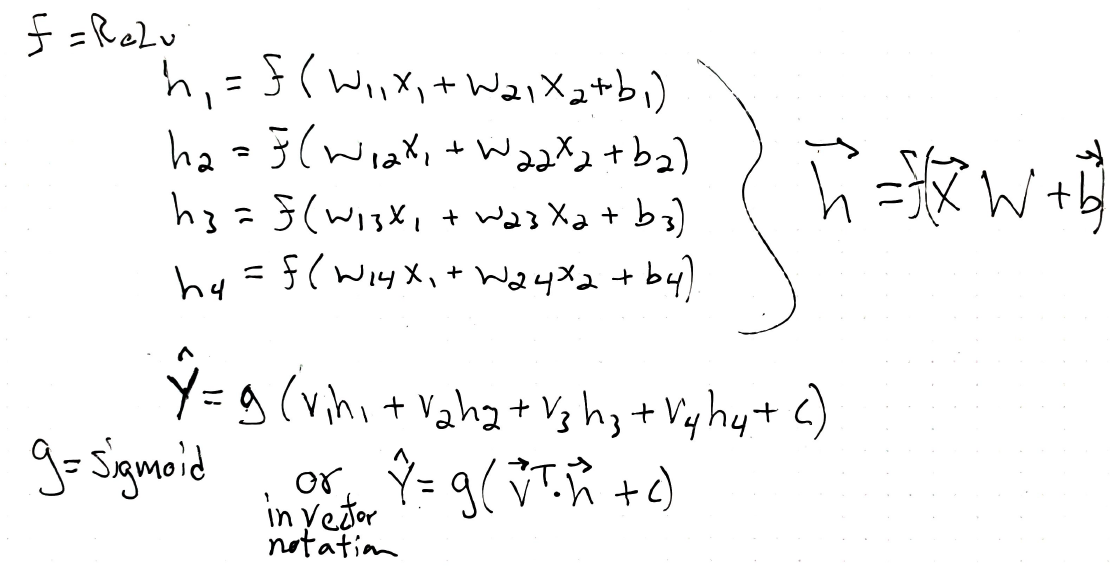 f = ReLu
h₁ = f(w₁₁x₁ + w₂₁x₂ + b₁)
h₂ = f(w₁₂x₁ + w₂₂x₂ + b₂)
h₃ = f(w₁₃x₁ + w₂₃x₂ + b₃)
h₄ = f(w₁₄x₁ + w₂₄x₂ + b₄)
h⃗ = f(x⃗ W + b⃗)
Ŷ = g(v₁h₁ + v₂h₂ + v₃h₃ + v₄h₄ + c)
g = Sigmoid
or Ŷ = g(v⃗ᵀ·h⃗ + c)
in vector
notation